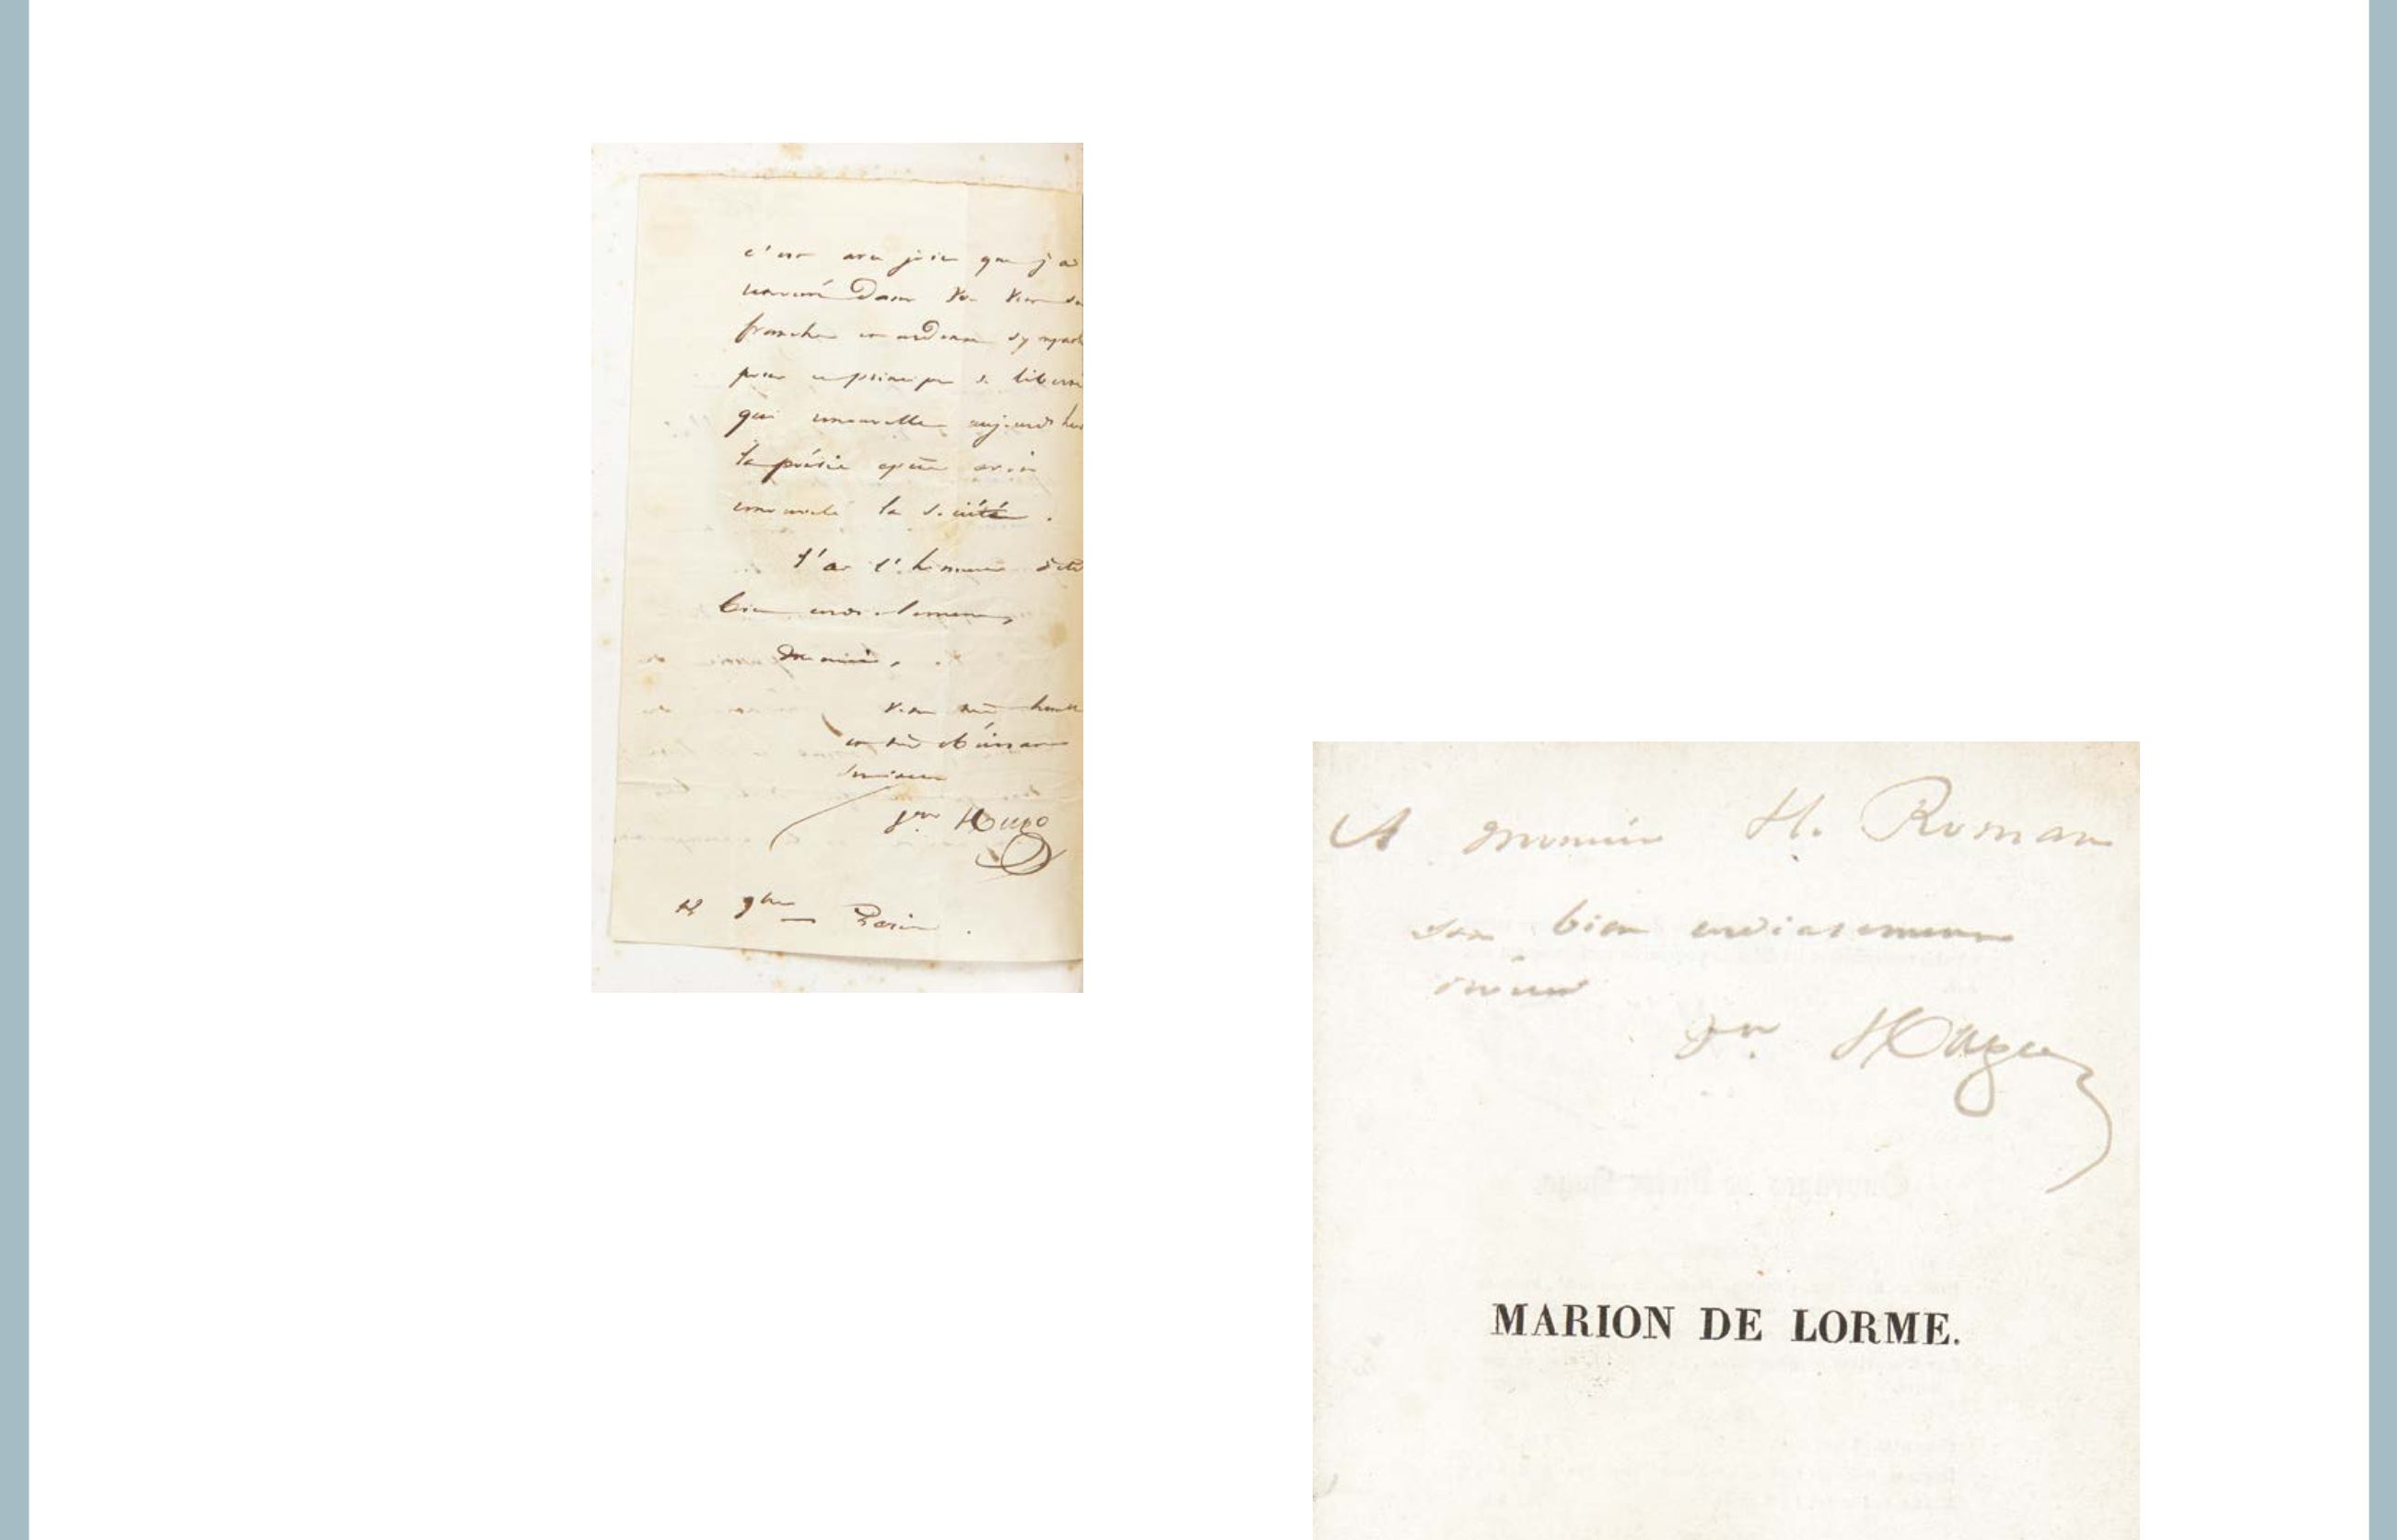 c'est avec joie que j'ai
trouvé dans vos vers
franche et ardente sympath
pour ce principe de liberté
qui renouvelle aujourd'hui
la poésie après avoir
renouvelé la société.
J'ai l'honneur d'être
bien cordialement,
Monsieur,
Votre très humble
et très obéissant
serviteur
Vor Hugo
9bre Paris.
A Monsieur H. Roman
son bien cordialement
dévoué
Vor Hugo
MARION DE LORME.